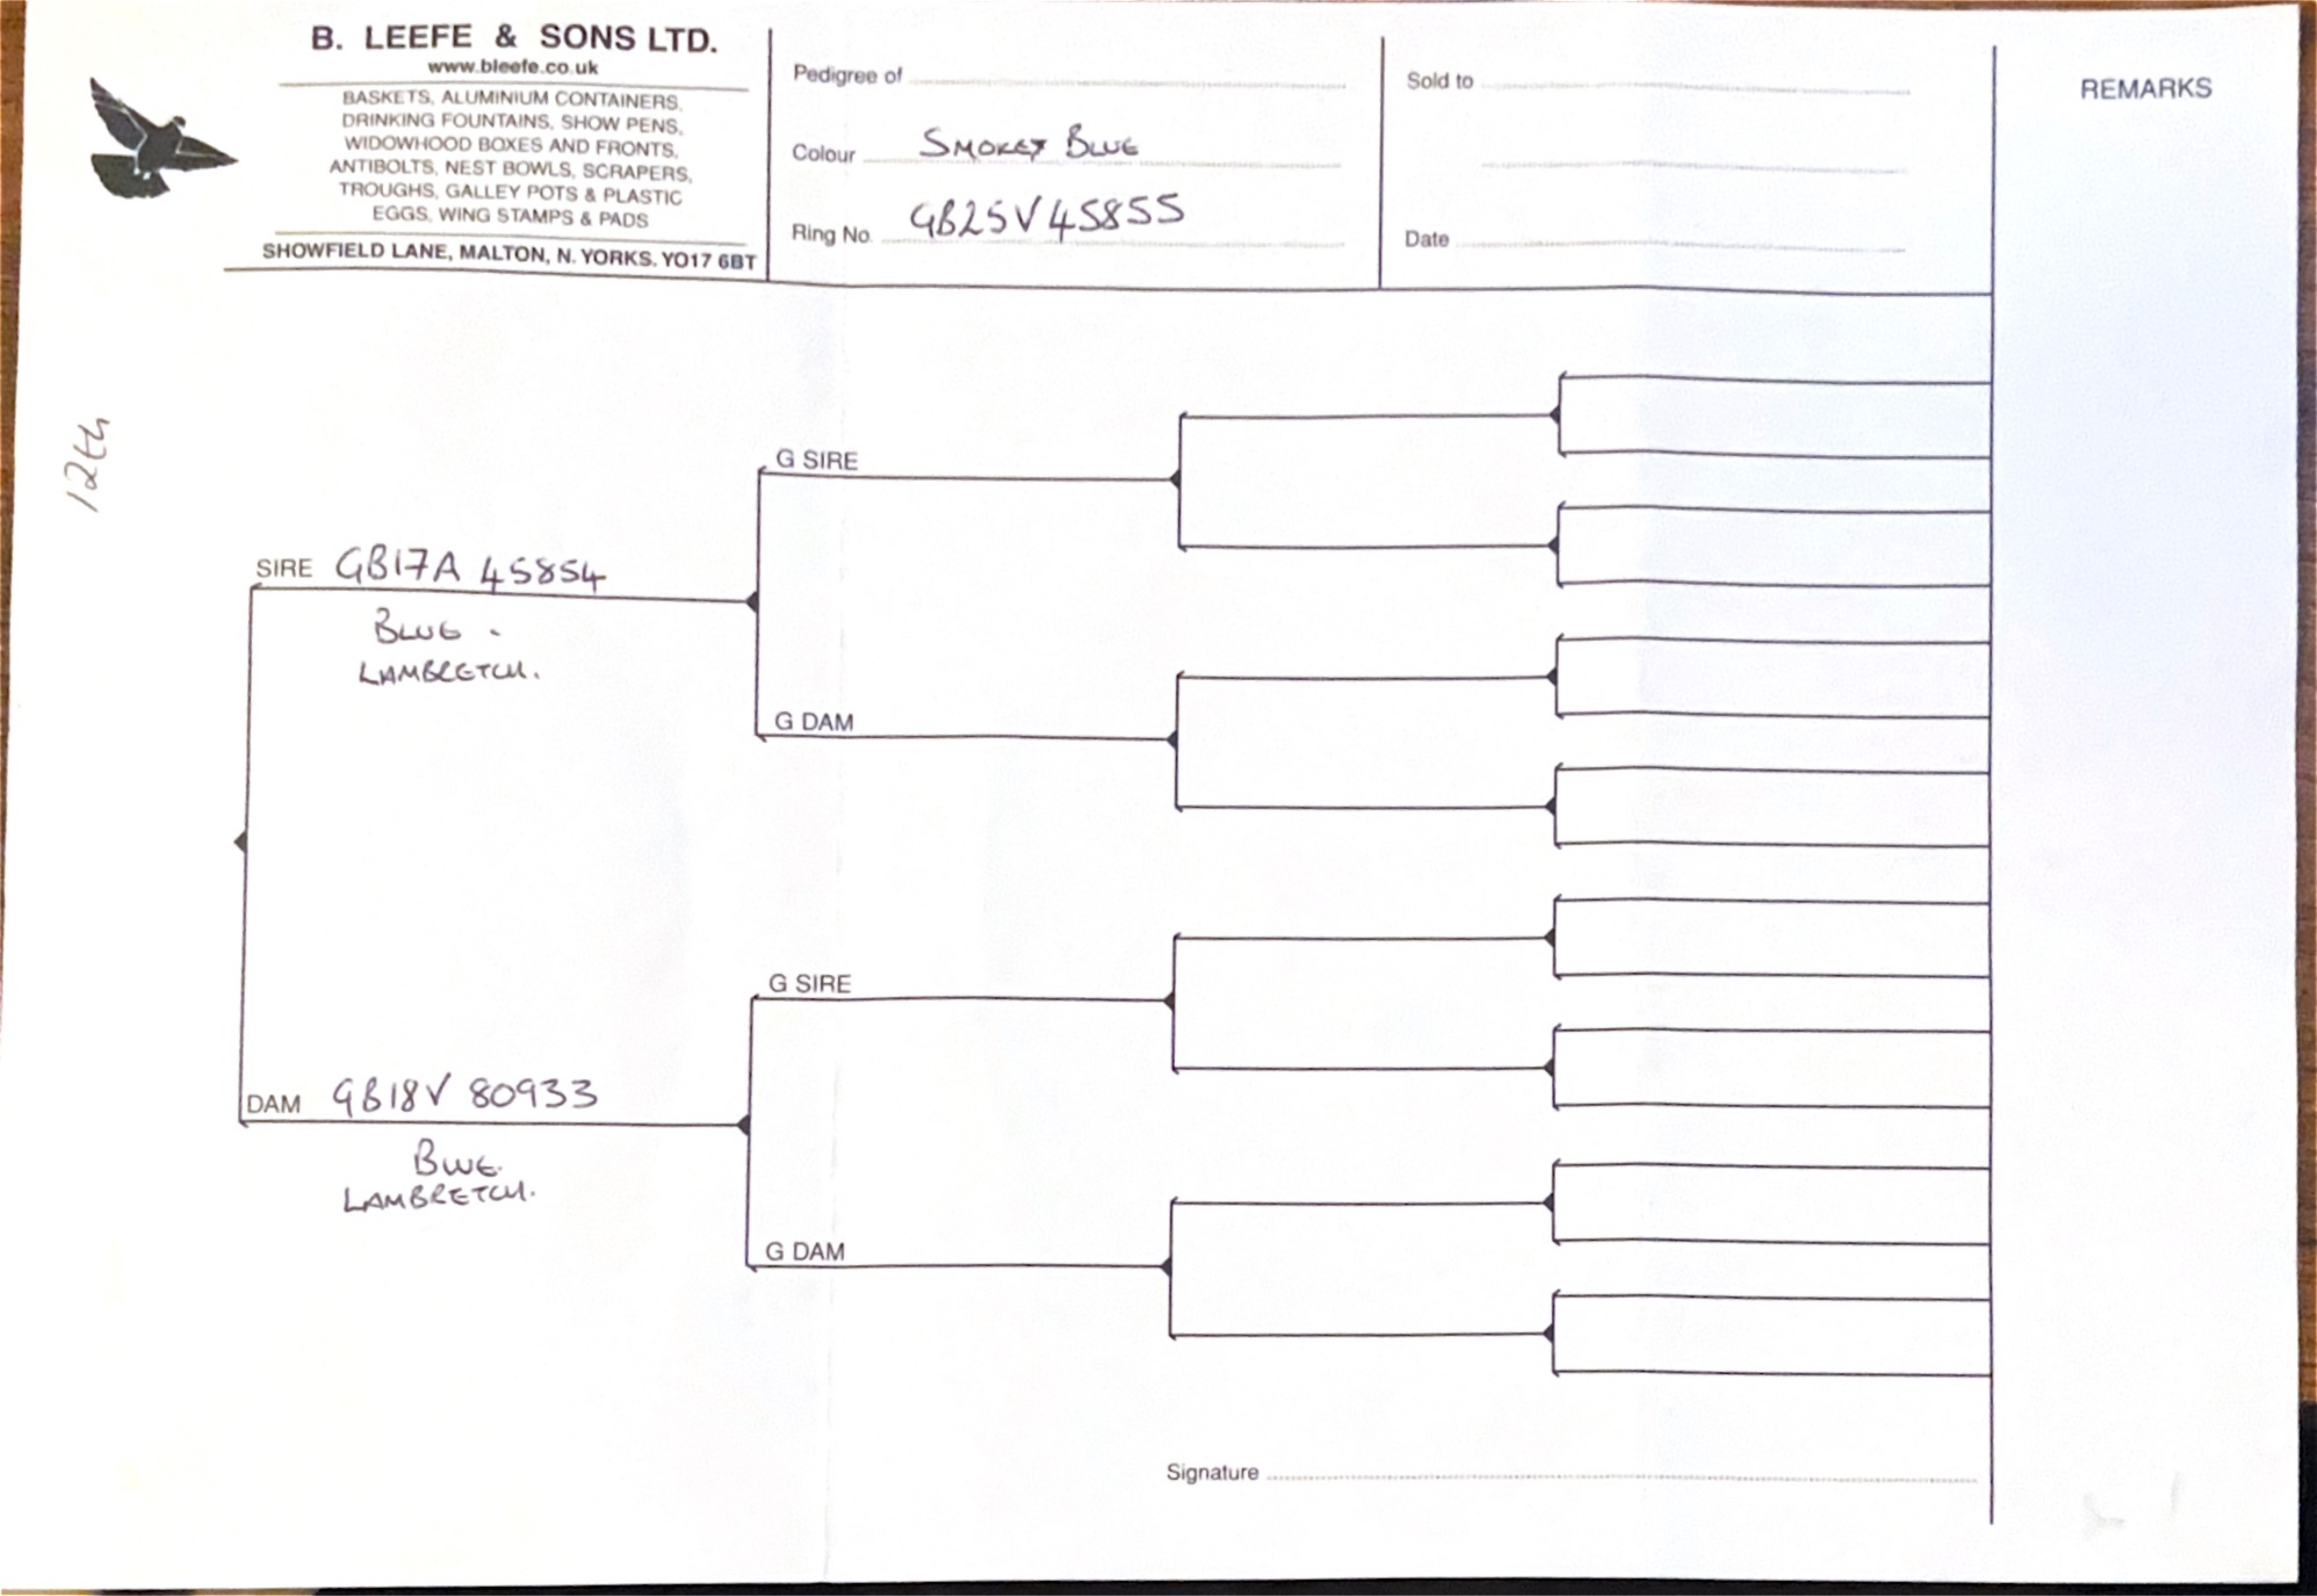 B. LEEFE & SONS LTD.
www.bleefe.co.uk
BASKETS, ALUMINIUM CONTAINERS,
DRINKING FOUNTAINS, SHOW PENS,
WIDOWHOOD BOXES AND FRONTS,
ANTIBOLTS, NEST BOWLS, SCRAPERS,
TROUGHS, GALLEY POTS & PLASTIC
EGGS, WING STAMPS & PADS
SHOWFIELD LANE, MALTON, N. YORKS. YO17 6BT
Pedigree of
Colour SMOKEY BLUE
Ring No. GB25V45855
Sold to
Date
REMARKS
12th
G SIRE
SIRE GB17A 45854
BLUE.
LAMBRETCH.
G DAM
G SIRE
DAM GB18V 80933
BLUE.
LAMBRETCH.
G DAM
Signature